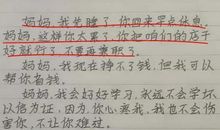 妈妈,我先睡了,你回来早点休息。
妈妈,这样你太累了,你把咱们的店干
好就行了,不要再兼职了。
妈妈,我现在挣不了钱,但我可以
帮你省钱。
妈妈,我会好好学习,我远不会学坏
以信为证,因为,你心疼我,我也不会伤
害你,不让你难过。